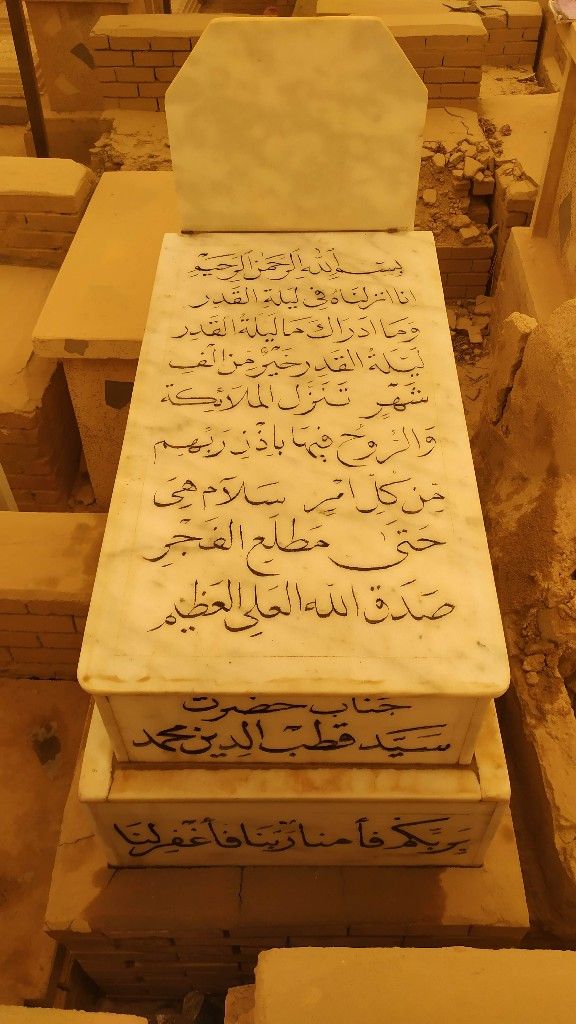 بسم الله الرحمن الرحيم
انا انزلناه في ليلة القدر
وما ادراك ما ليلة القدر
ليلة القدر خير من الف
شهر تنزل الملائكة
والروح فيها باذن ربهم
من كل امر سلام هي
حتى مطلع الفجر
صدق الله العلي العظيم
جناب حضرت
سيد قطب الدين محمد
بربكم فأمنا ربنا فأغفر لنا